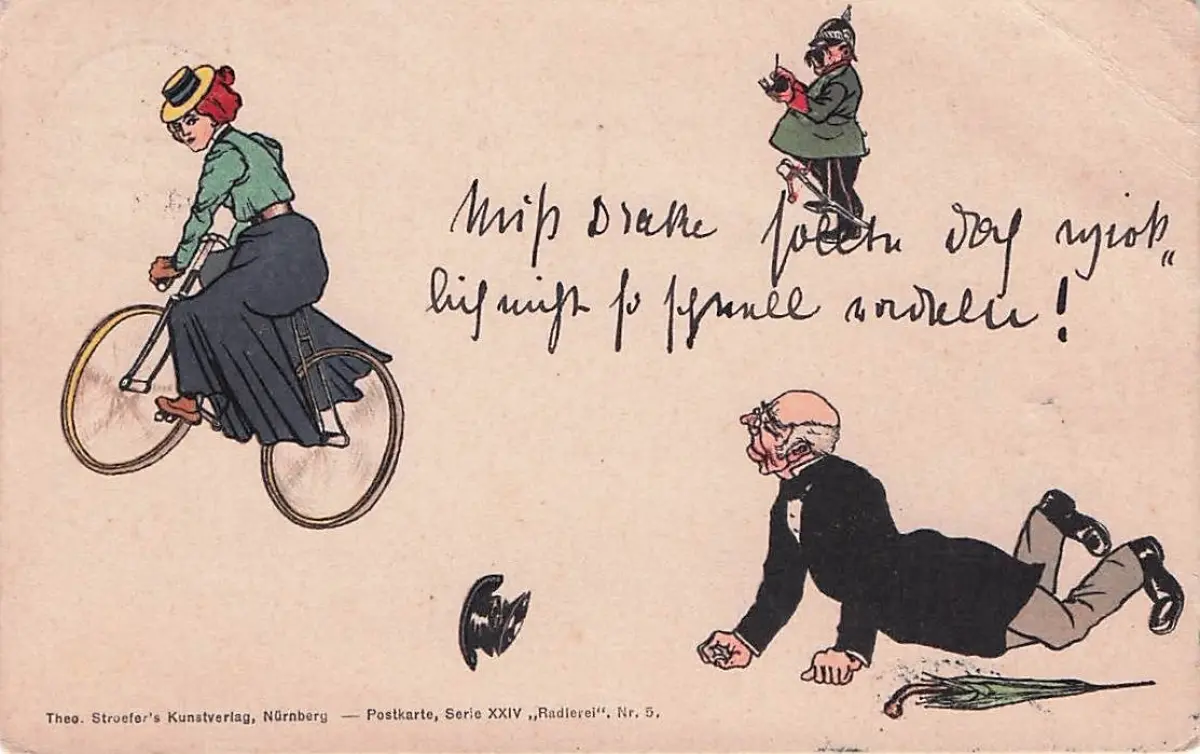 Miß Drake sollte doch
lich nicht so schnell !
Theo. Stroefer's Kunstverlag, Nürnberg — Postkarte, Serie XXIV „Radlerei“. Nr. 5.